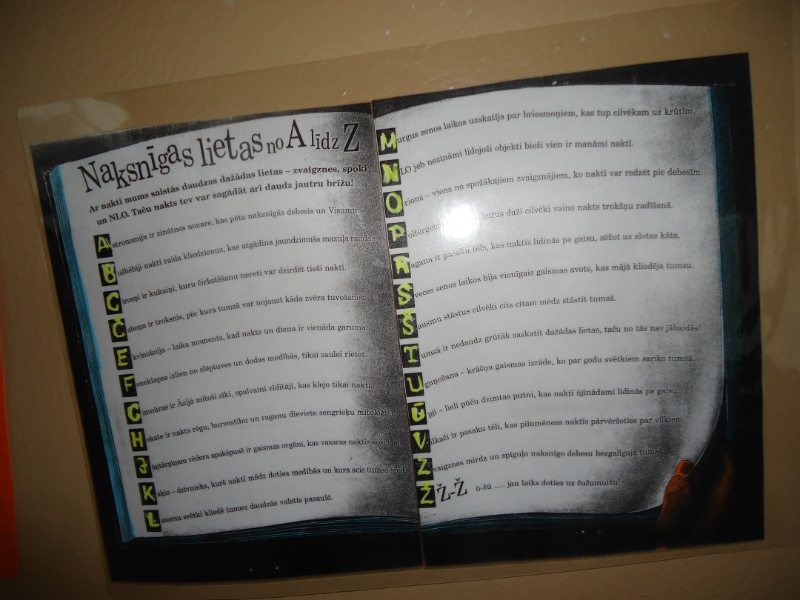 Naksnīgas lietas no A līdz Z
Ar nakti mums saistās daudzas dažādas lietas – zvaigznes, spoki
un NLO. Taču nakts tev var sagādāt arī daudz jautru brīžu!
Astronomija ir zinātnes nozare, kas pēta naksnīgās debesis un Visumu.
nakti raida kliedzienus, kas atgādina jaundzimuša mazuļa raudas
Circeņi ir kukaiņi, kuru čirkstēšanu nereti var dzirdēt tieši naktī.
Čaboņa ir troksnis, pēc kura tumsā var nojaust kāda zvēra tuvošanos.
Ekvinokcija – laika moments, kad nakts un diena ir vienāda garuma.
izlien no slēptuves un dodas medībās, tikai saulei rietot.
ir Āzijā mītoši sīki, spalvaini zīdītāji, kas klejo tikai naktī.
Hekate ir nakts rēgu, burvestību un raganu dieviete sengrieķu
Jāņtārpiņam vēdera apakšpusē ir gaismas orgāni, kas vasaras naktīs
Kaķis – dzīvnieks, kurš naktī mēdz doties medībās un kura acis tumsā
Laternu svētki kliedē tumsu daudzās valstīs pasaulē.
Murgus senos laikos uzskatīja par briesmoņiem, kas tup cilvēkam uz krūtīm.
NLO jeb neuināmi lidojoši objekti bieži vien ir manāmi naktī.
Orions – viens no spožākajiem zvaigznājiem, ko naktī var redzēt pie debesīm.
kurus daži cilvēki vaino nakts trokšņu radīšanā.
Ragana ir pasaku tēls, kas naktīs lidinās pa gaisu, sēžot uz slotas kāta.
Sveces senos laikos bija vienīgais gaismas avots, kas mājā kliedēja tumsu.
Šausmu stāstus cilvēki cits citam mēdz stāstīt tumsā.
Tumsā ir nedaudz grūtāk saskatīt dažādas lietas, taču no tās nav jābaidās!
Uguņošana – krāšņa gaismas izrāde, ko par godu svētkiem sarīko tumsā.
Ūpji – lieli pūču dzimtas putni, kas naktī ūjinādami lidinās pa gaisu.
Vilkači ir pasaku tēli, kas pilnmēness naktīs pārvēršoties par vilkiem.
Zvaigznes mirdz un spīguļo naksnīgo debesu bezgalīgajā tumsā.
Ž Ž-Ž ū-žū ..... jau laiks doties uz čučumuižu!